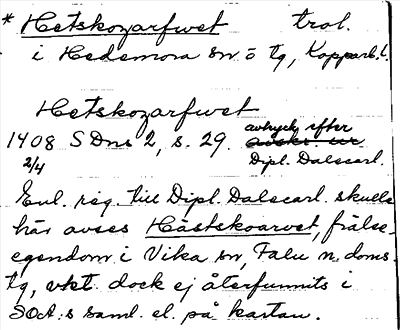 * Hetskozarfwet trol.
i Hedemora sn o tg, Kopparb. l.
Hetskozarfwet
1408 SDns 2, s. 29. avtryck efter
2/4 Dipl. Dalecarl.
Enl. reg. till Dipl. Dalecarl. skulle
här avses Hästskoarvet, frälse-
egendom i Vika sn, Falu n. doms.
tg, vkt dock ej återfunnits i
SOA:s saml. el. på kartan.